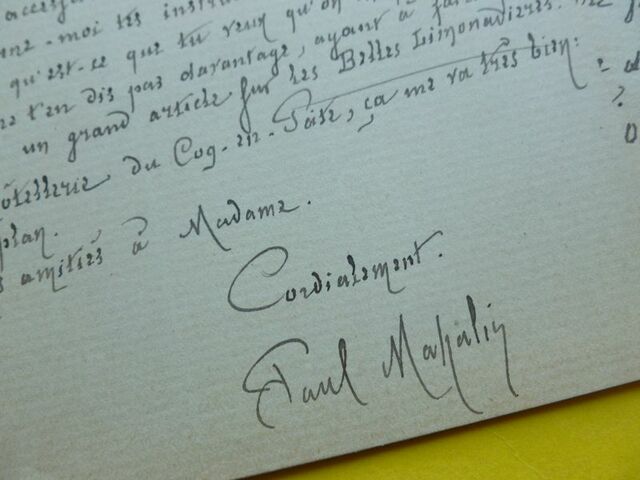 -moi tes inst
qu'est-ce que tu veux qu'on
t'en dis pas davantage, ayant à fa
un grand article sur les Belles Limonadières.
ôtellerie du Coq-en-Pâte, ça me va très bien:
plan.
amitiés à Madame.
Cordialement.
Paul Mahalin